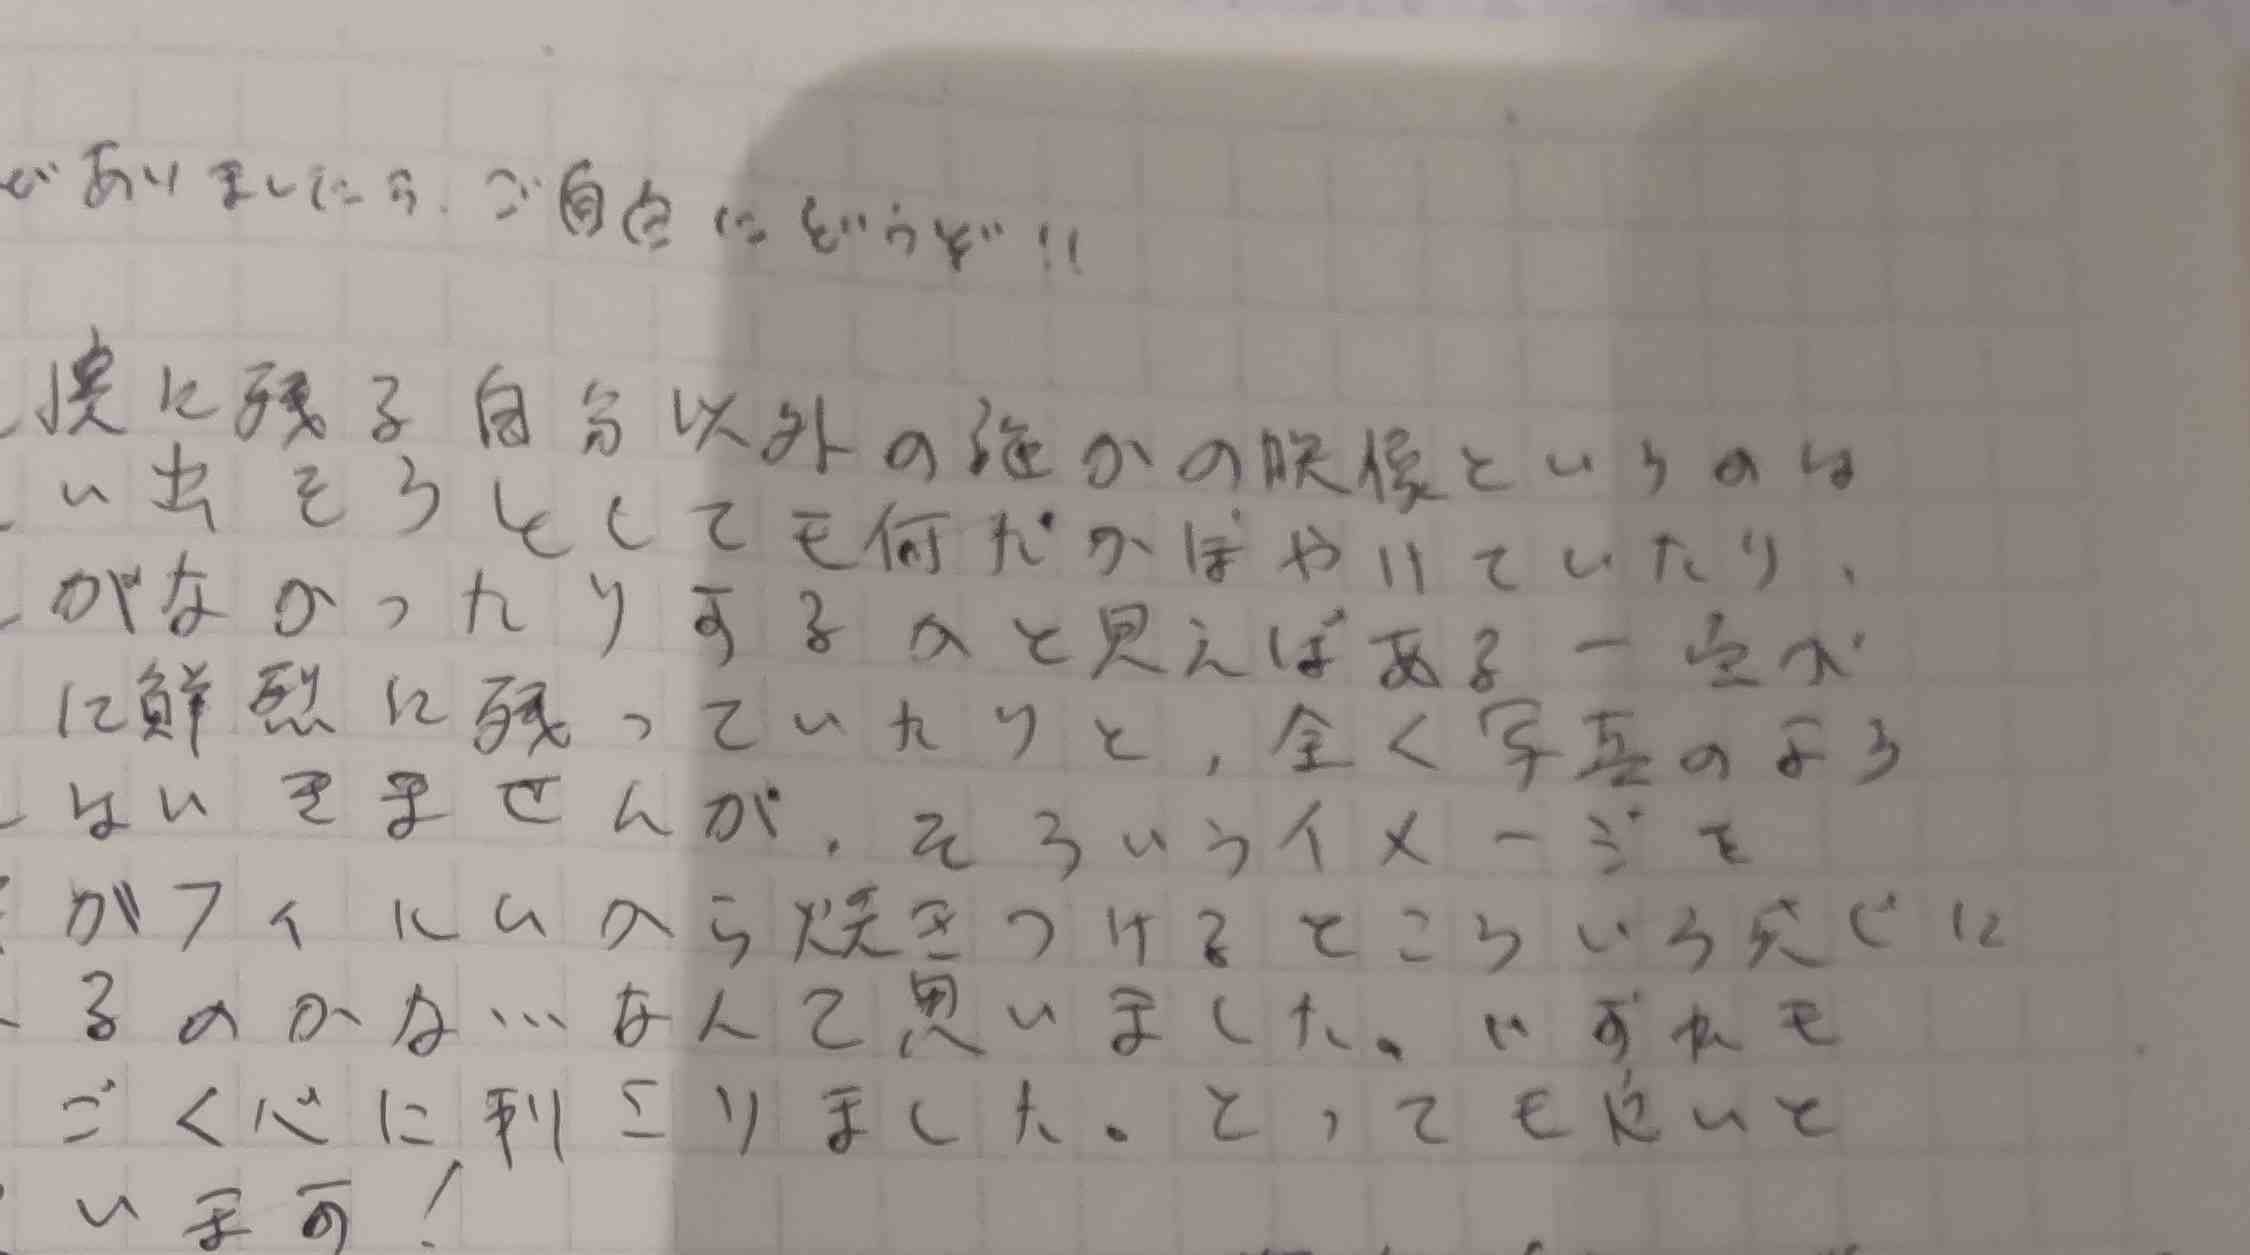 がありましたら、ご自由にどうぞ!!
に残る自分以外の誰かの映像というのは
い出そうとしても何だかぼやけていたり、
がなかったりするかと思えばある一点が
に鮮烈に残っていたりと、全く写真のよう
はいきませんが、そういうイメージを
がフィルムから焼きつけるとこういう感じに
るのかな…なんて思いました。いずれも
ごく心に刺こりました。とっても良いと
います!